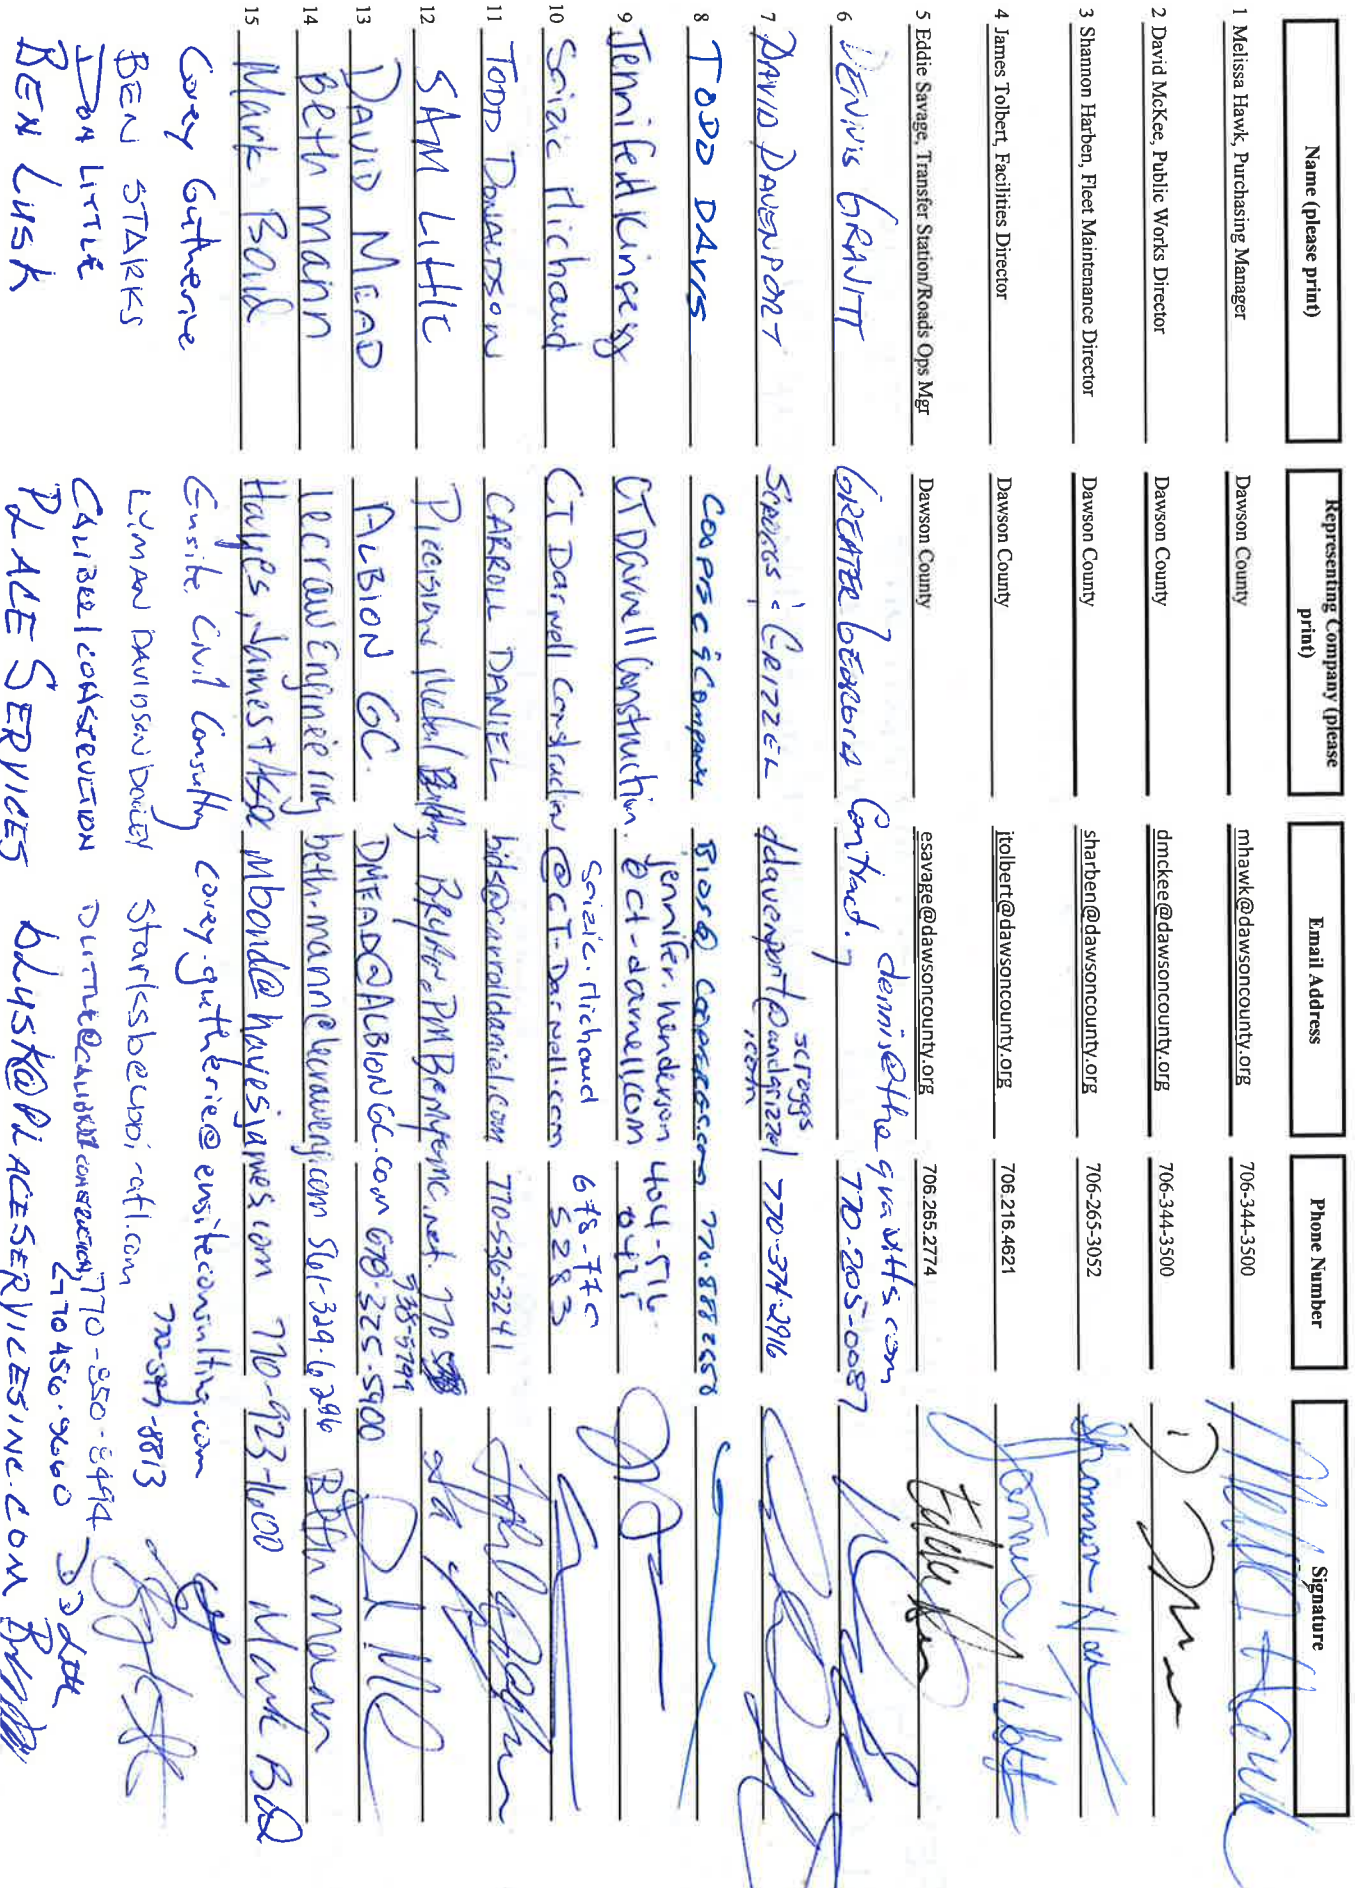 Name (please print) Representing Company (please print) Email Address Phone Number Signature
1 Melissa Hawk, Purchasing Manager Dawson County mhawk@dawsoncounty.org 706-344-3500
2 David McKee, Public Works Director Dawson County dmckee@dawsoncounty.org 706-344-3500
3 Shannon Harben, Fleet Maintenance Director Dawson County sharben@dawsoncounty.org 706-265-3052
4 James Tolbert, Facilities Director Dawson County jtolbert@dawsoncounty.org 706.216.4621
5 Eddie Savage, Transfer Station/Roads Ops Mgr Dawson County esavage@dawsoncounty.org 706.265.2774
6 DENNIS GRAVITT GREATER GEORGIA Contract. dennis@the gravitts.com 770-205-0087
7 DAVID DAVENPORT SCROGGS & GRIZZEL ddavenport@scroggsandgrizzel.com 770-374-2916
8 TODD DAVIS COOPER & COMPANY 770.888 2658
9 Jennifer Kinsey CT Darnell Construction. jennifer.henderson@ct-darnell.com 404-516-0425
10 Michaud CT Darnell Construction @CT-Darnell.com 5283
11 TODD DONALDSON CARROLL DANIEL bids@carrolldaniel.com 770-536-3241
12 SAM Precision Metal 770 538-5799
13 DAVID MEAD ALBION GC. DMEAD@ALBIONGC.COM 678-325-5900
14 Beth Mann Lecraw Engineering beth.mann@lecraweng.com 561-329-6296 Beth Mann
15 Mark Bond Hayes, James + Assoc mbond@hayesjames.com 770-923-1600 Mark Bond
Corey Gutherie Ensite Civil Consulting corey.gutherie@ensiteconsulting.com
BEN STARKS LYMAN DAVIDSON DOOLEY 770-597-8813
DON LITTLE CALIBER 1 CONSTRUCTION
BEN LUSK PLACE SERVICES BLUSK@PLACESERVICESINC.COM